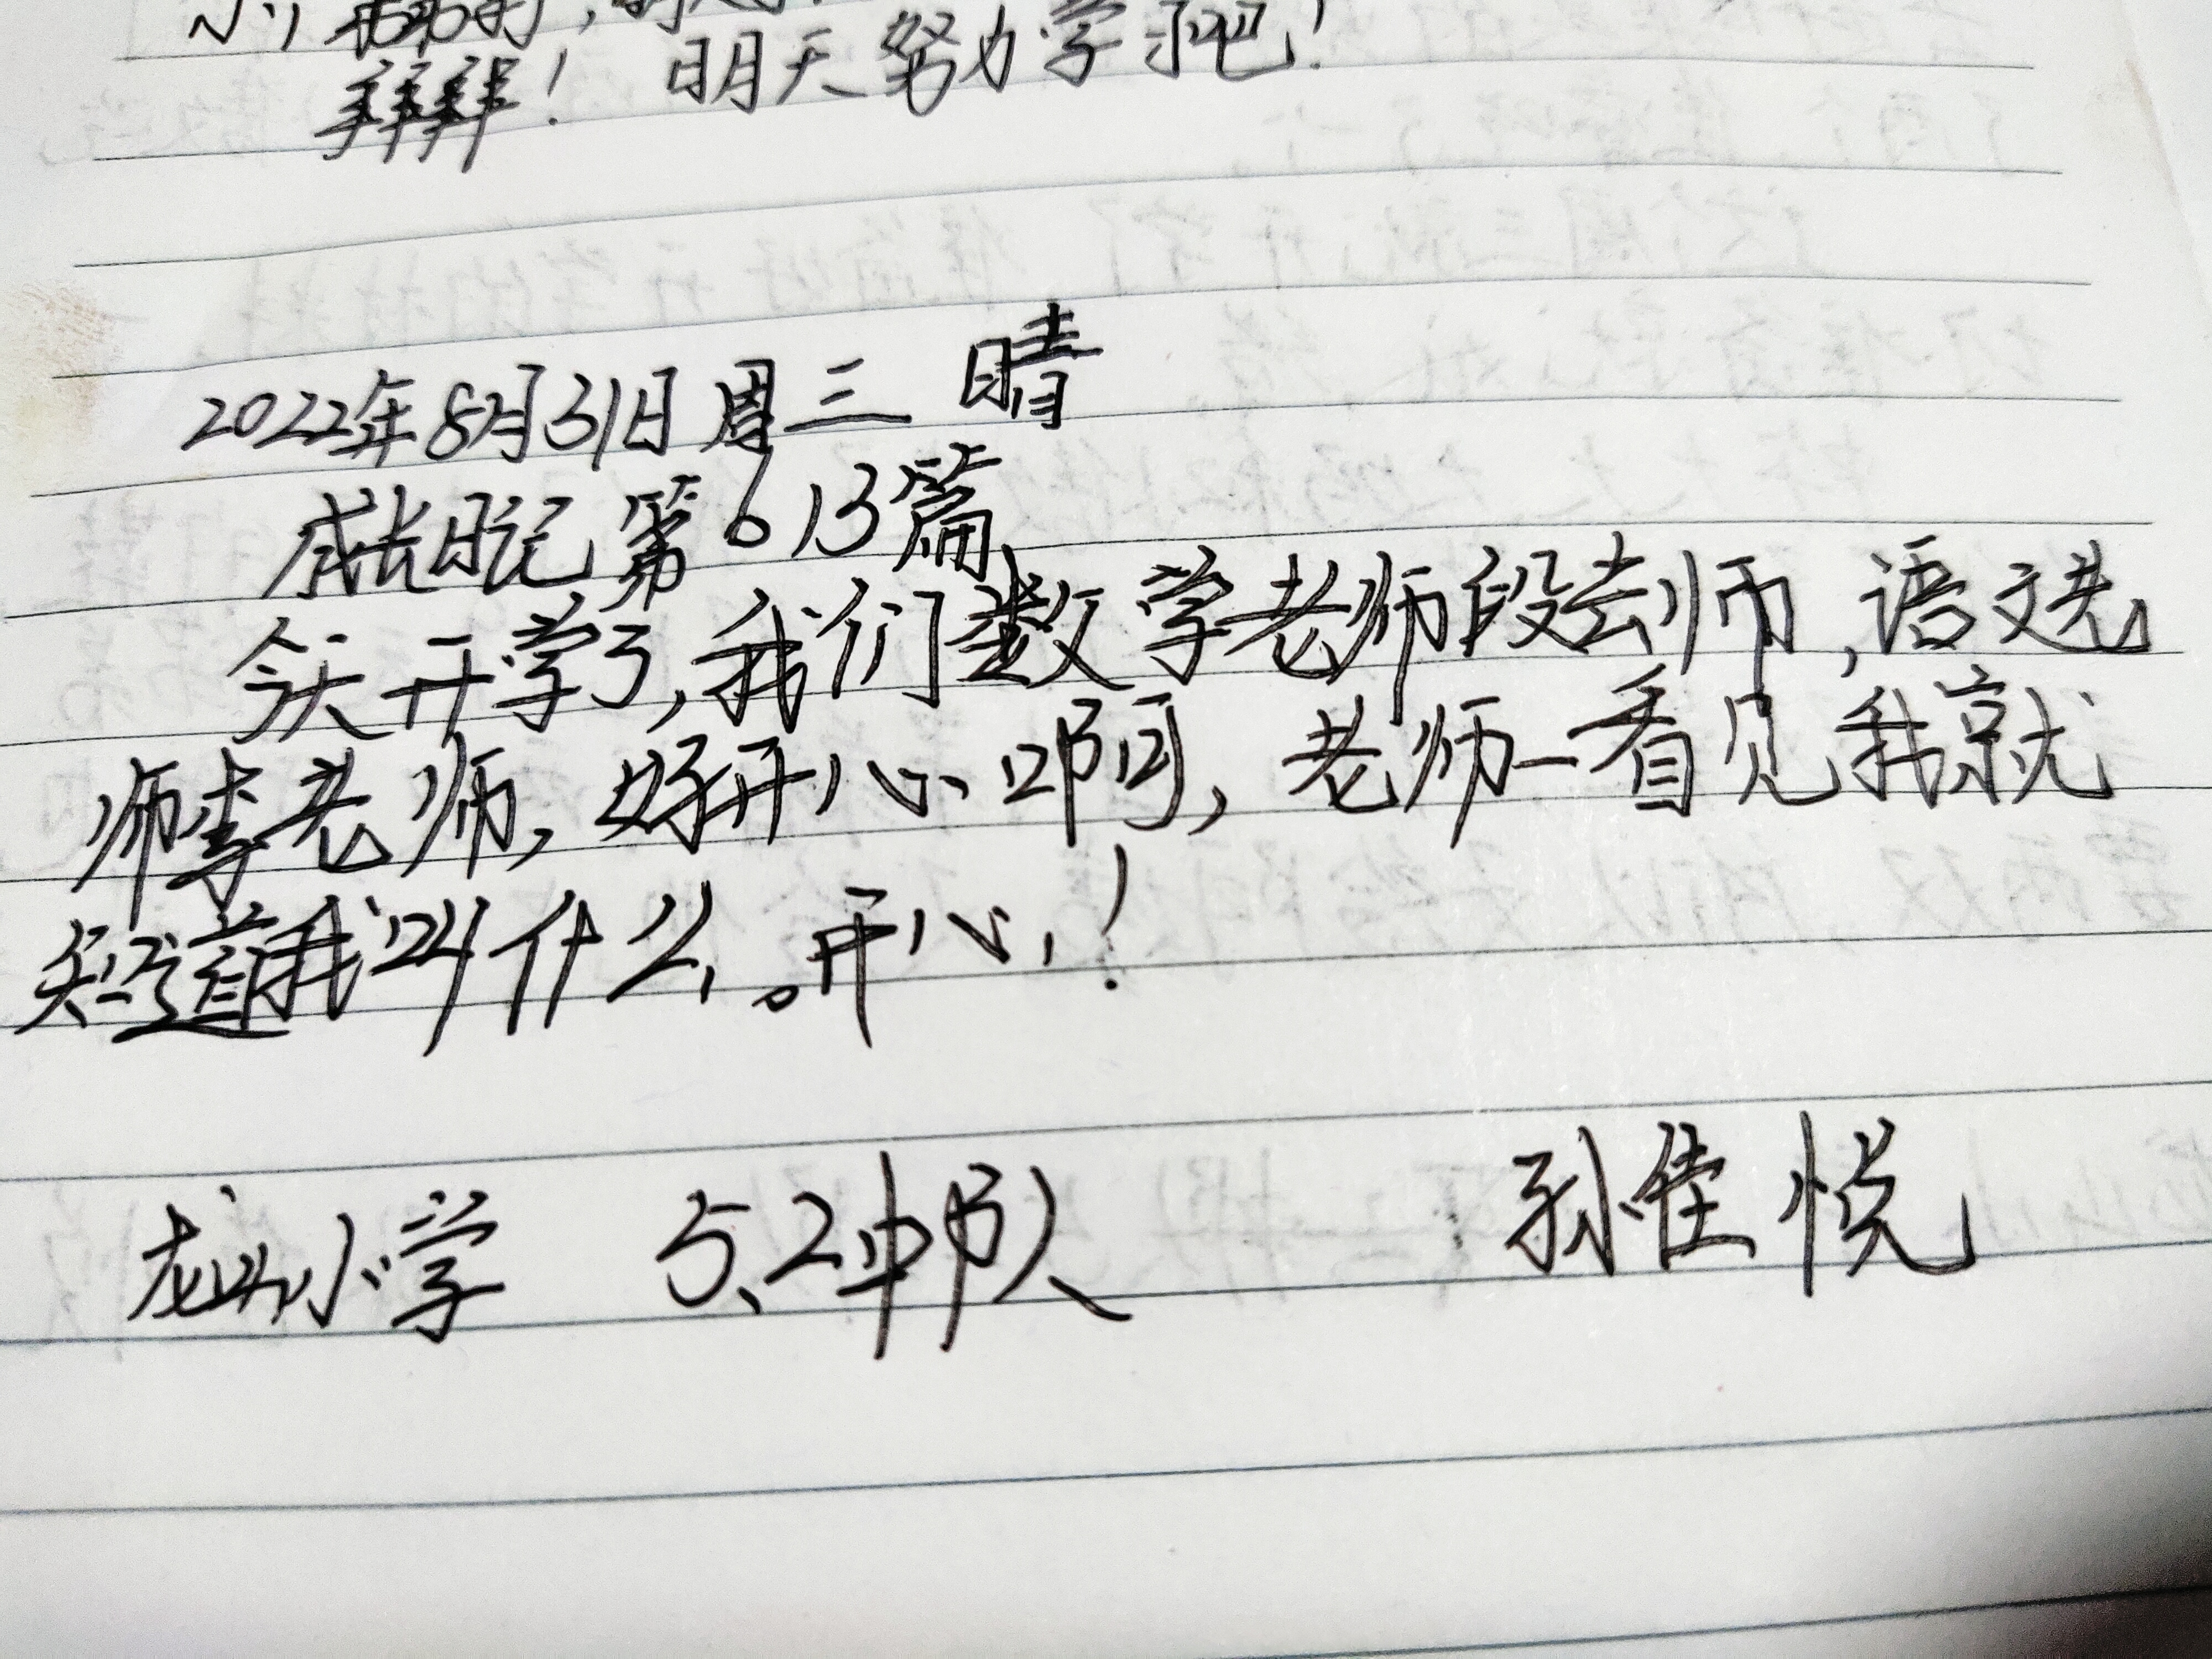 拜拜！ 明天努力学习吧！
2022年8月31日 周三 晴
成长日记 第613篇
今天开学了,我们数学老师段老师,语文老
师李老师,好开心啊,老师一看见我就
知道我叫什么。开心！
龙山小学 5、2中队 孙佳悦